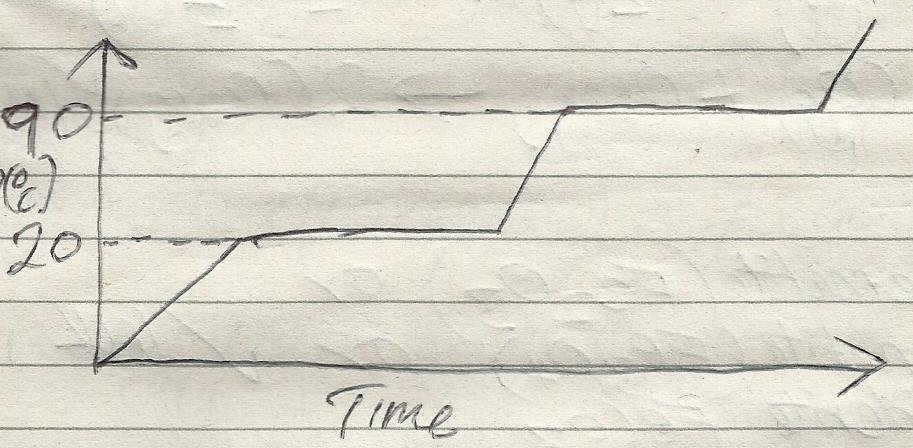 90
(°C)
20
Time